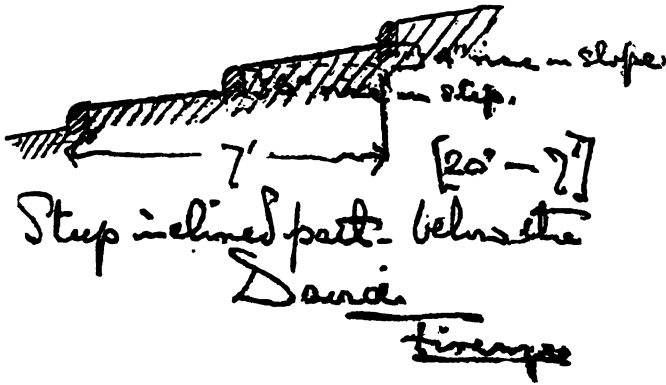 4" rise in slope.
rise in step.
7'
[20" - 7']
Steep inclined part - below the
David.
Firenze